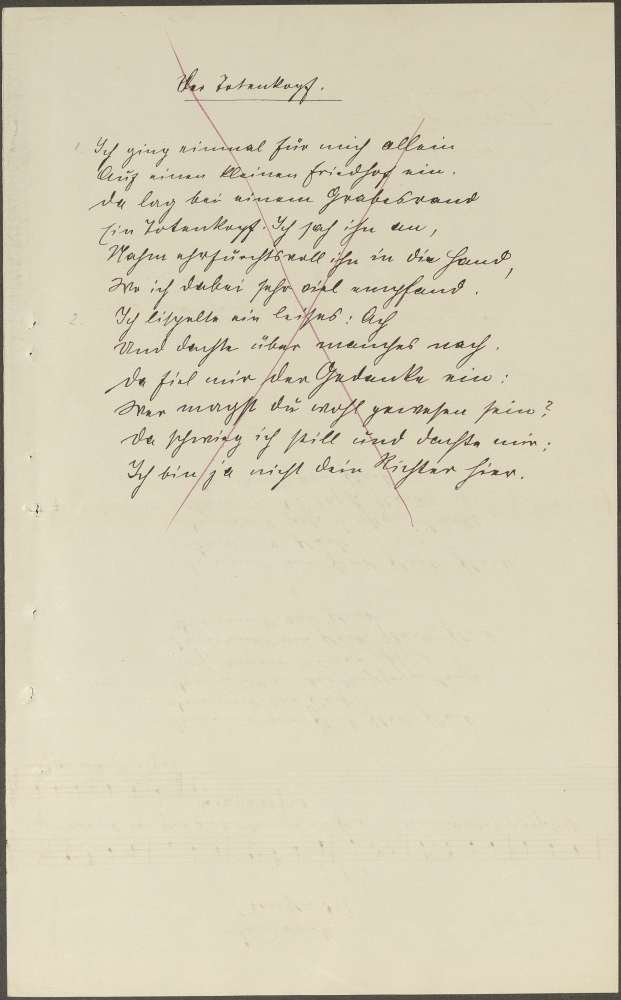 Der Totenkopf.
1. Ich ging einmal für mich allein
Auf einen kleinen Friedhof ein.
Da lag bei einem Grabesrand
Ein Totenkopf. Ich sah ihn an,
Nahm ehrfurchtsvoll ihn in die Hand,
Wo ich dabei sehr viel empfand.
2. Ich lispelte ein leises: Ach
Und dachte über manches nach.
Da fiel mir der Gedanke ein:
Wer magst du wohl gewesen sein?
Da schwieg ich still und dachte mir:
Ich bin ja nicht dein Richter hier.